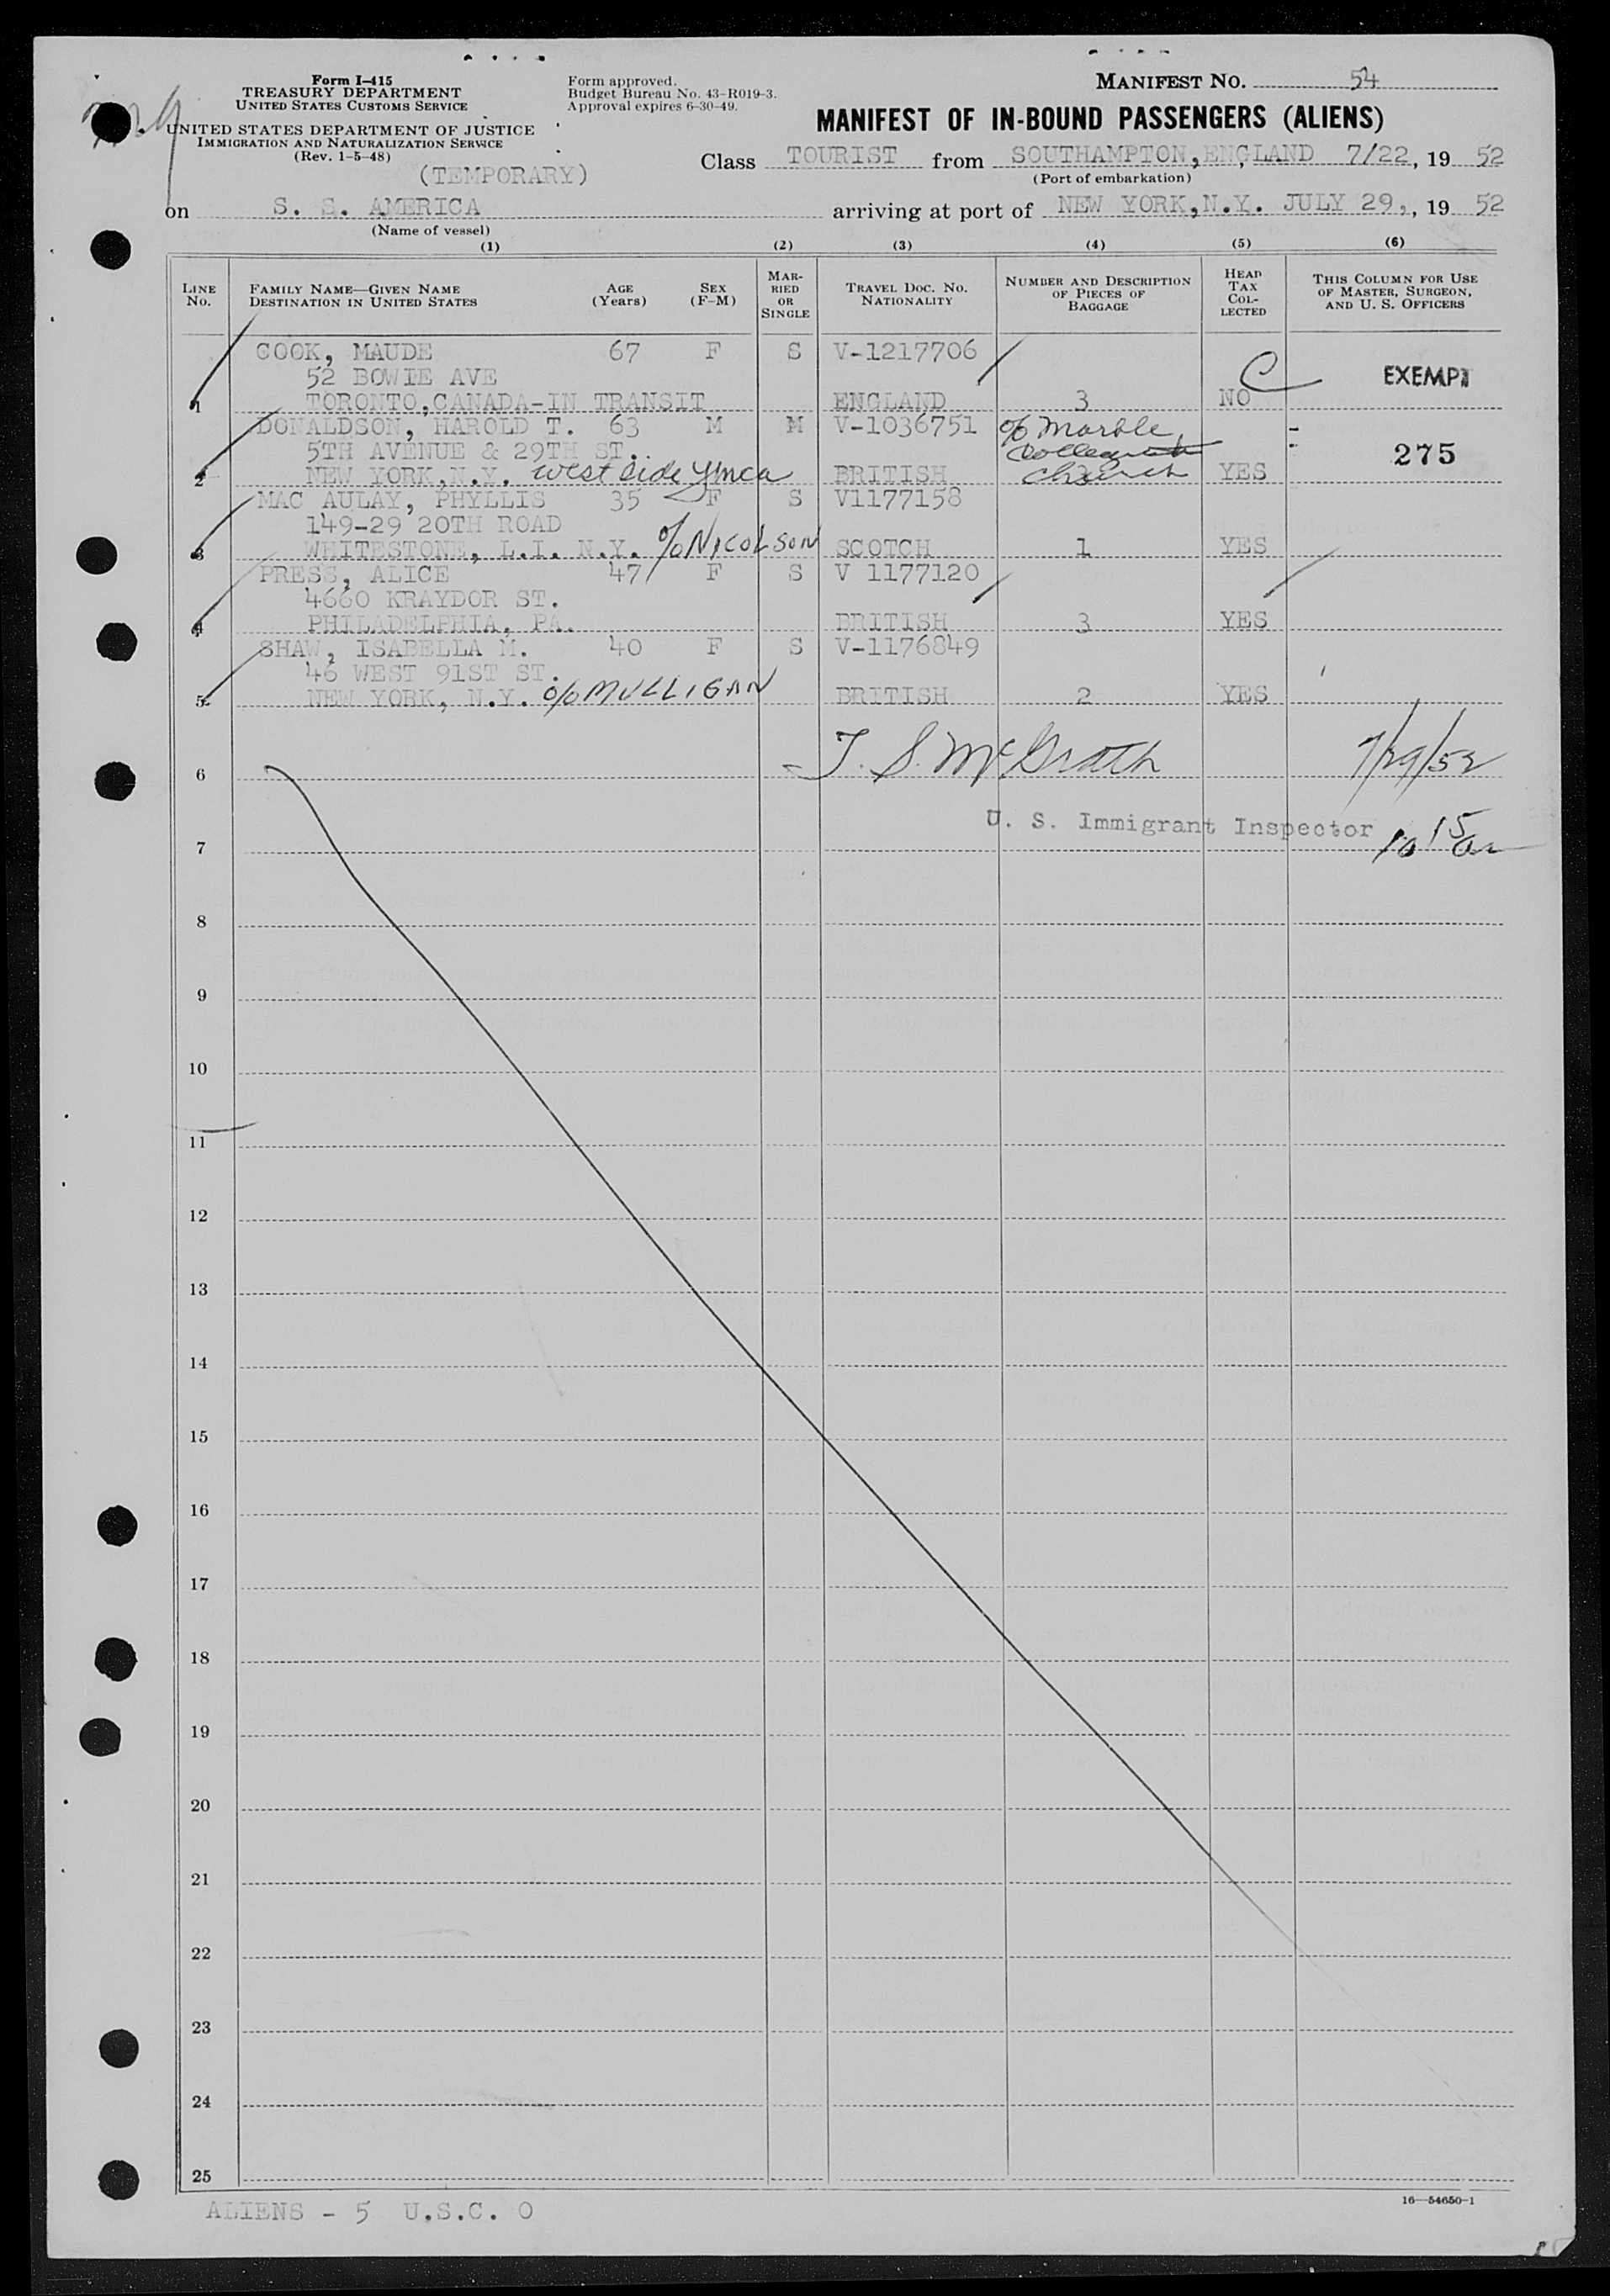 Form I-415
TREASURY DEPARTMENT
UNITED STATES CUSTOMS SERVICE
UNITED STATES DEPARTMENT OF JUSTICE
IMMIGRATION AND NATURALIZATION SERVICE
(Rev. 1-5-48)
(TEMPORARY)
Form approved.
Budget Bureau No. 43-R019-3.
Approval expires 6-30-49.
MANIFEST NO. 54
MANIFEST OF IN-BOUND PASSENGERS (ALIENS)
Class TOURIST from SOUTHAMPTON, ENGLAND 7/22, 19 52
(Port of embarkation)
on S. S. AMERICA arriving at port of NEW YORK, N.Y. JULY 29,, 19 52
(Name of vessel)
(1) (2) (3) (4) (5) (6)
LINE NO. FAMILY NAME—GIVEN NAME DESTINATION IN UNITED STATES AGE (Years) SEX (F-M) MARRIED OR SINGLE TRAVEL DOC. NO. NATIONALITY NUMBER AND DESCRIPTION OF PIECES OF BAGGAGE HEAD TAX COLLECTED THIS COLUMN FOR USE OF MASTER, SURGEON, AND U. S. OFFICERS
COOK, MAUDE 67 F S V-1217706
52 BOWIE AVE C EXEMPT
1 TORONTO, CANADA-IN TRANSIT ENGLAND 3 NO
DONALDSON, HAROLD T. 63 M M V-1036751 c/o Marble
5TH AVENUE & 29TH ST.. Collegiate 275
2 NEW YORK, N.Y. West Side Ymca BRITISH Church YES
MAC AULAY, PHYLLIS 35 F S V1177158
149-29 20TH ROAD
3 WHITESTONE, L.I. N.Y. c/o NICOLSON SCOTCH 1 YES
PRESS, ALICE 47 F S V 1177120
4660 KRAYDOR ST.
4 PHILADELPHIA, PA. BRITISH 3 YES
SHAW, ISABELLA M. 40 F S V-1176849
46 WEST 91ST ST.
5 NEW YORK, N.Y. c/o MULLIGAN BRITISH 2 YES
6 T. S. McGrath 7/29/52
U. S. Immigrant Inspector
7 10 15 am
8
9
10
11
12
13
14
15
16
17
18
19
20
21
22
23
24
25
ALIENS - 5 U.S.C. 0
16—54650-1